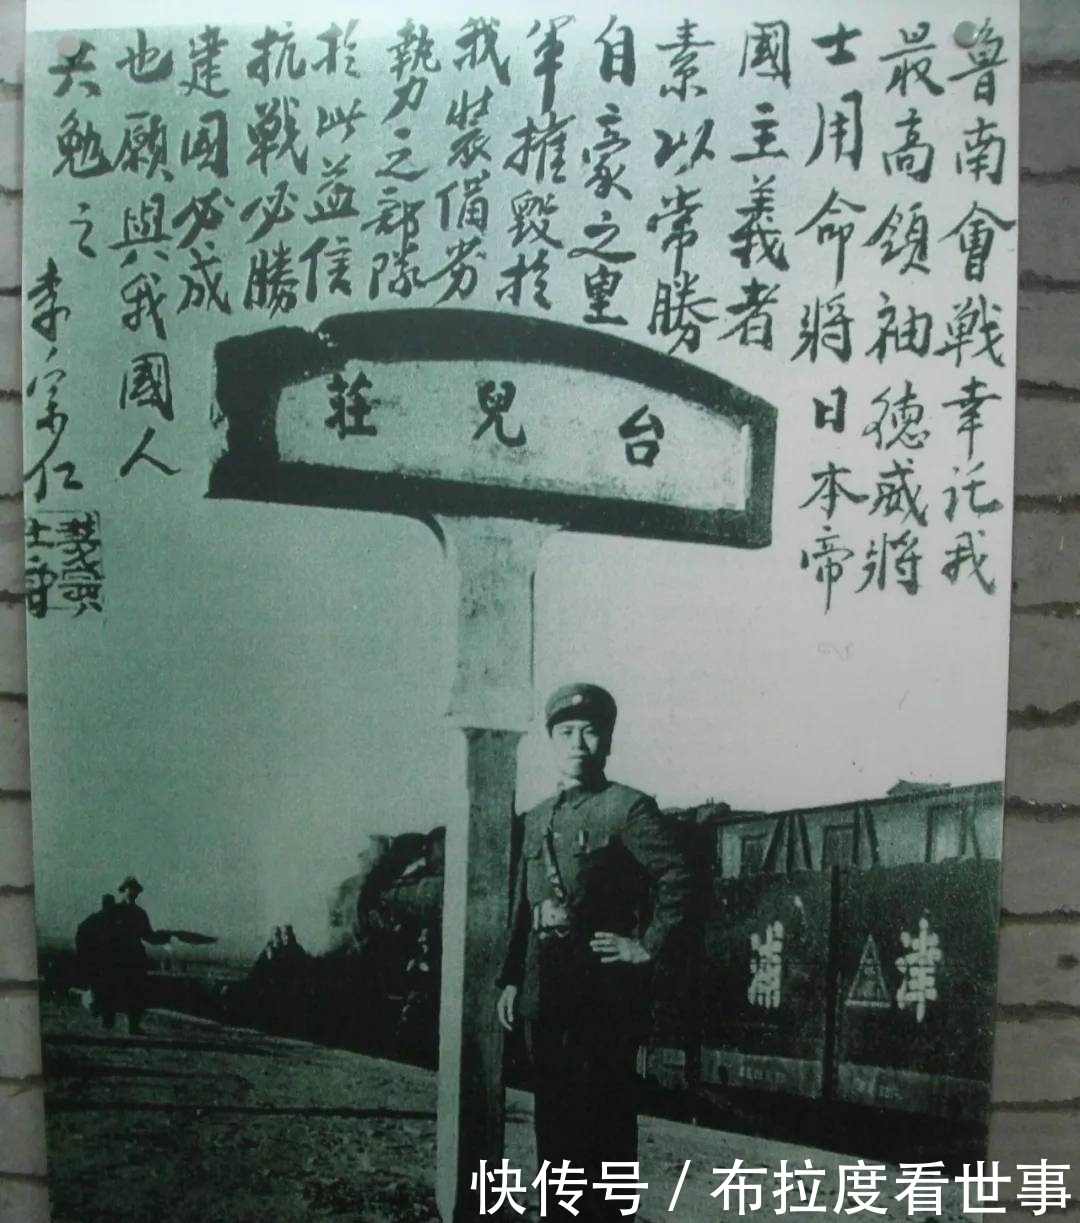 魯南會戰幸託我
最高領袖德威將
士用命將日本帝
國主義者
素以常勝
自豪之皇
軍摧毀於
我裝備劣
勢之部隊
於此益信
抗戰必勝
建國必成
也願與我國人
共勉之
李宗仁
台兒莊
津浦
快传号 / 布拉度看世事